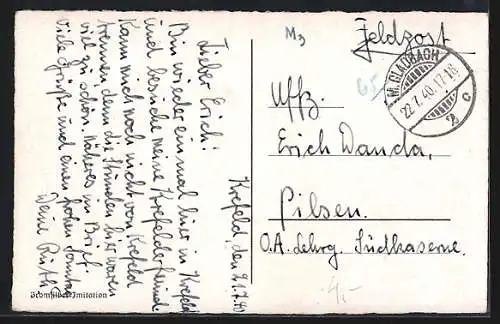 Krefeld, den 21.7.40
Lieber Erich!
Bin wieder einmal hier in Krefeld
und besuche meine Krefelder Freunde.
Kann mich noch nicht von Krefeld
trennen, denn die Stunden hier waren
viel zu schön. Näheres im Brief.
Viele Grüße und einen frohen Sonntag
Deine Ruth
Bromsilber-Imitation
M3
Feldpost
M. GLADBACH
22.7.40.17-18
2 c
Uffz.
Erich Wanda,
Pilsen.
O.A. Lehrg. Südkaserne.
4,-